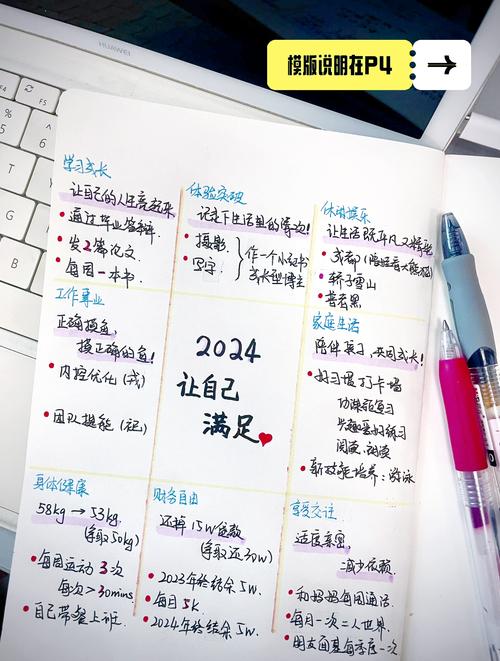 HUAWEI
模版说明在P4
学习成长
让自己的人生亮起来
通过毕业答辩.
发2篇论文.
每周一本书.
体验突破
记录下生活里的每次!
摄影.
写字.
作一个小红书
成长型博主
休闲娱乐
让生活既平凡又精彩
成都
轿子雪山
普者黑
工作事业
正确摸鱼,
摸正确的鱼!
内控优化(我)
团队提能(记)
2024
让自己
满足
家庭生活
陪伴练习,共同成长!
好习惯打卡墙
功课能复习
兴趣爱好练习
阅读、朗读
新技能培养:游泳
身体健康
58kg→53kg
(争取50kg)
每周运动3次
每次>30mins
自己带餐上班.
财务自由
还掉15W贷款
(争取还30W)
2023年终结余5W.
每月5K.
2024年终结余5W.
享受交往
适度亲密,
减少依赖.
和妈妈每周通话.
每月一次二人世界.
朋友面基每季度一次